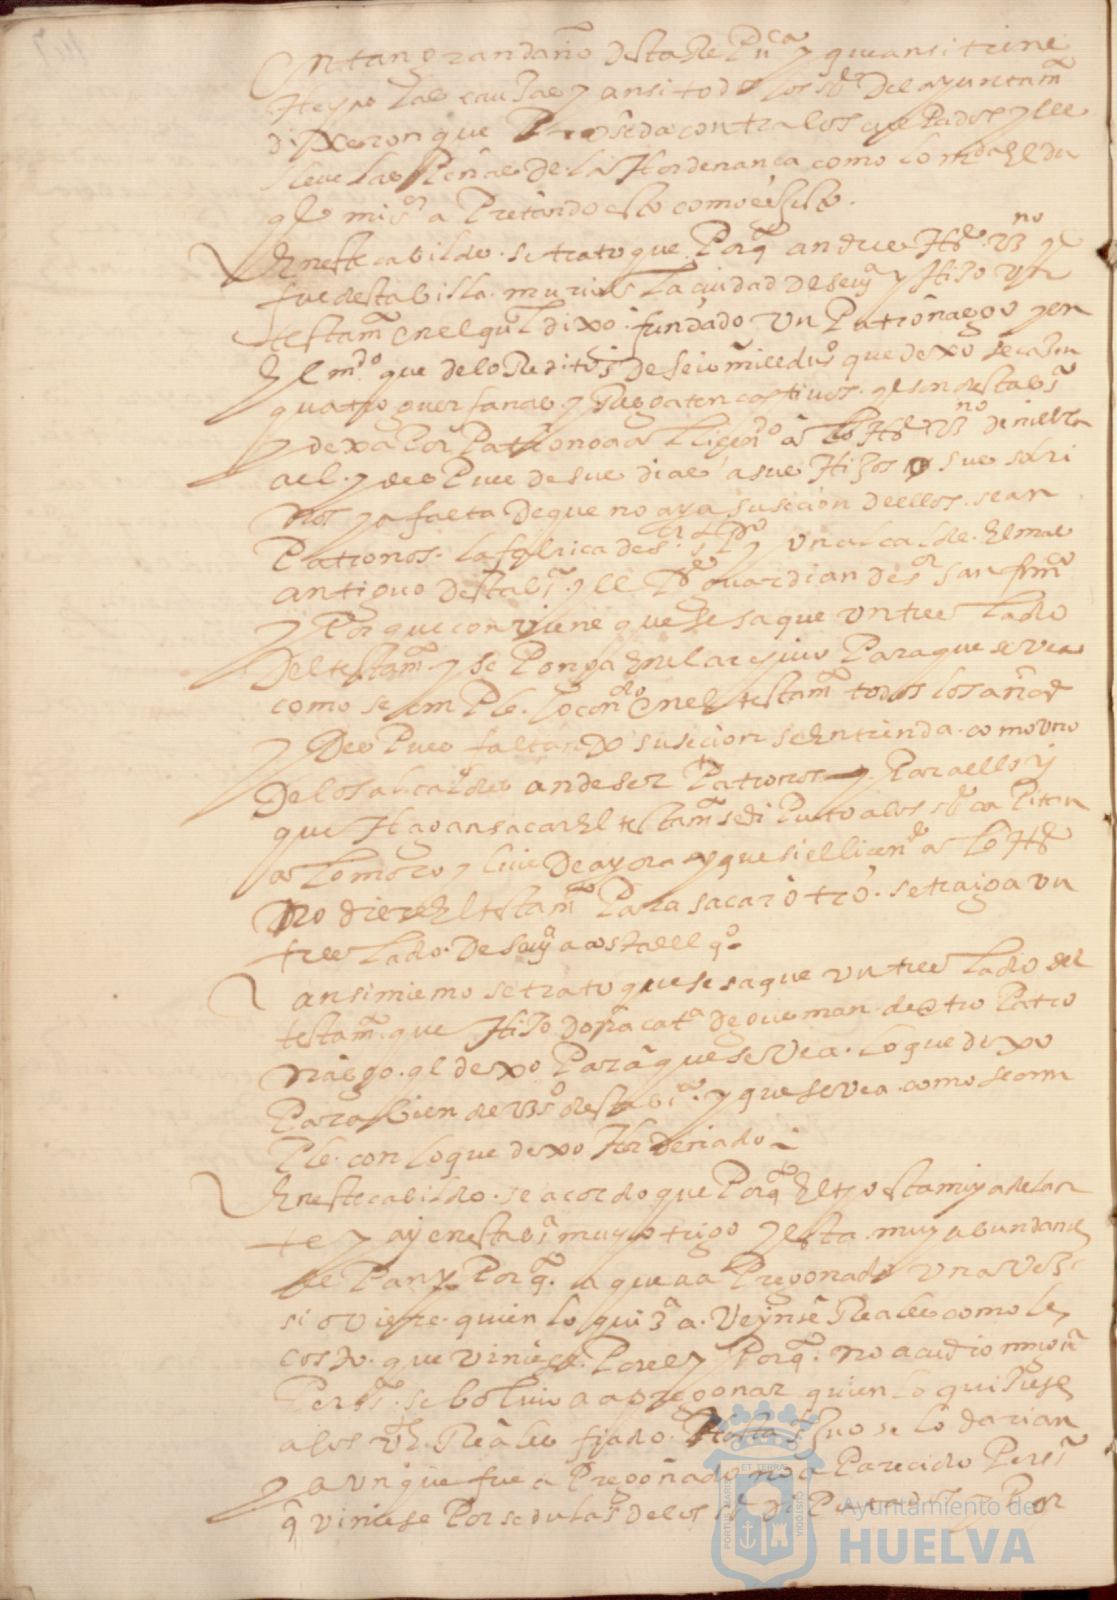 En tan gran daño desta Rep pu ca y que ansi tiene
las causas y ansi todos los srs del ayuntamo
dixeron que se proseda contra los culpados y se
lleve las penas de la hordenança como lo manda el du
que mi sr apretando esto como es justo.
En este cabildo se trato que porq andres
que fue desta billa murio en la ciudad de seua y hizo un
testamo en el qual dixo fundado un patronasgo y en
el mdo que de los reditos de seis mil ducos que dexo se casen
quatro guerfanas y rregaten captiuos q sean desta ba
y dexa por patrono al licendo de niebla
y despues de sus dias a sus hijos o sus sobri
nos y a falta de que no aya susecion dellos sean
patronos la fabrica de sr s po y un alcalde el mas
antiguo desta ba y el pe guardian de sr san franco
y porque conviene que se saque un tres lado
del testamo y se ponga en el archivo para que se vea
como se cumple lo condo en el testamo todos los años
y despues faltando susecion se entienda como uno
de los alcaldes an de ser patronos y para ello y
que hagan sacar el testamo se diputo a los srs capitan
a lo moro y luis de ayora y que si el licendo
no diere el testamo para sacar otro se traiga un
tres lado de seua a costa del qo
ansimismo se trato que se saque un tres lado del
testamo que hizo doña cata de guzman de otro patro
nasgo ql dexo para que se vea lo que dexo
para bien de vos desta ba y que se vea como se cum
ple con lo que dexo hordenado
En este cabildo se acordo que porq el tpo esta muy adelan
te y ay en esta ba mucho trigo y esta muy abundante
de pan y porq aqua a pregonado una vez
si oviese quien lo quisa a veynte reales como le
costo que viniese por el y porq no acudio ningua
persa se boluio a apregonar quien lo quisiese
a los reales fiado hasta se lo darian
y aunque fue apregonado no a parecido persa
q viniese por sedulas de los srs diputados y por
Ayuntamiento de
HUELVA
PORTUS MARIS
ET TERRAE
CUSTODIA